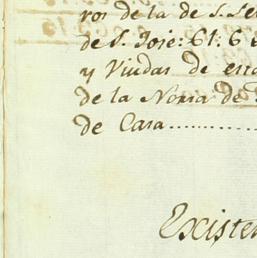 ros de la de S. Se
de S. Jose: 61: 6
y Viudas de esc
de la Noria de
de Casa..............
Existen